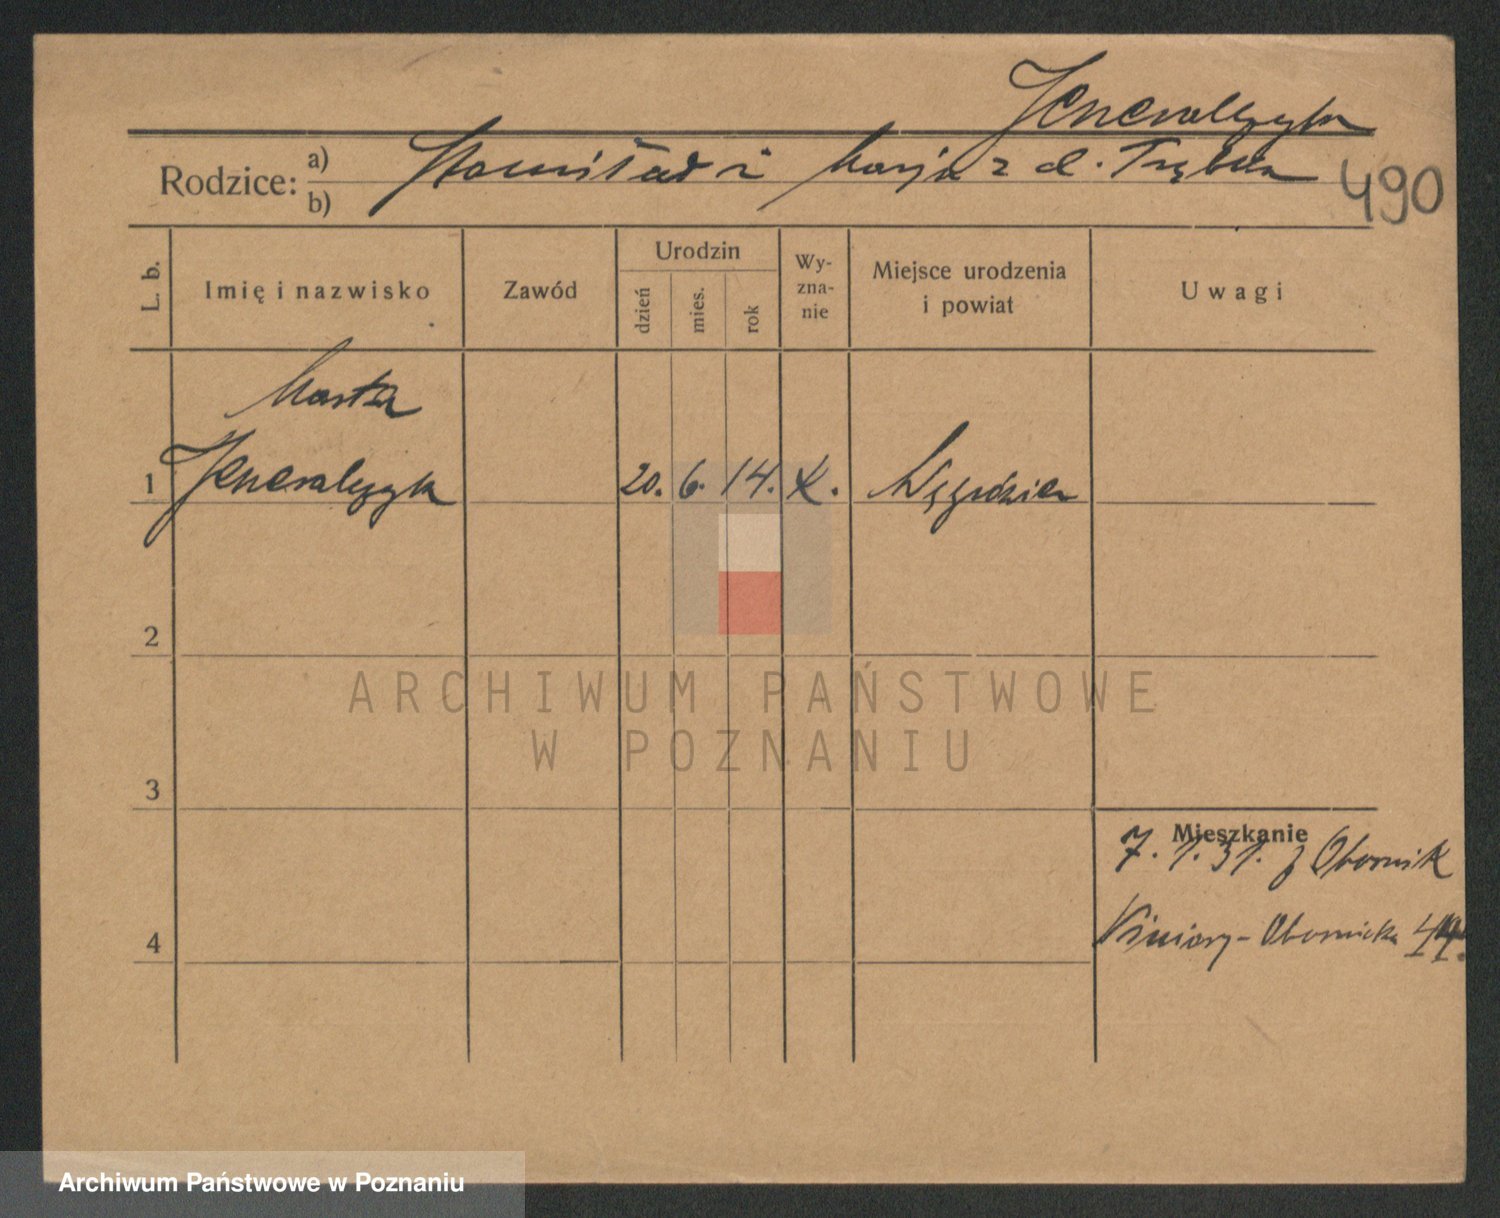 Jeneralczyk
Rodzice: a) Stanisław i Marja z d. Trąbka
b)
490
L. b.
Imię i nazwisko
Zawód
Urodzin
dzień
mies.
rok
Wy-
zna-
nie
Miejsce urodzenia
i powiat
Uwagi
Marta
1 Jeneralczyk 20. 6. 14. k.
2
ARCHIWUM PAŃSTWOWE
W POZNANIU
3
Mieszkanie
7. 1. 31. z Obornik
4
Winiary - Obornicka
Archiwum Państwowe w Poznaniu